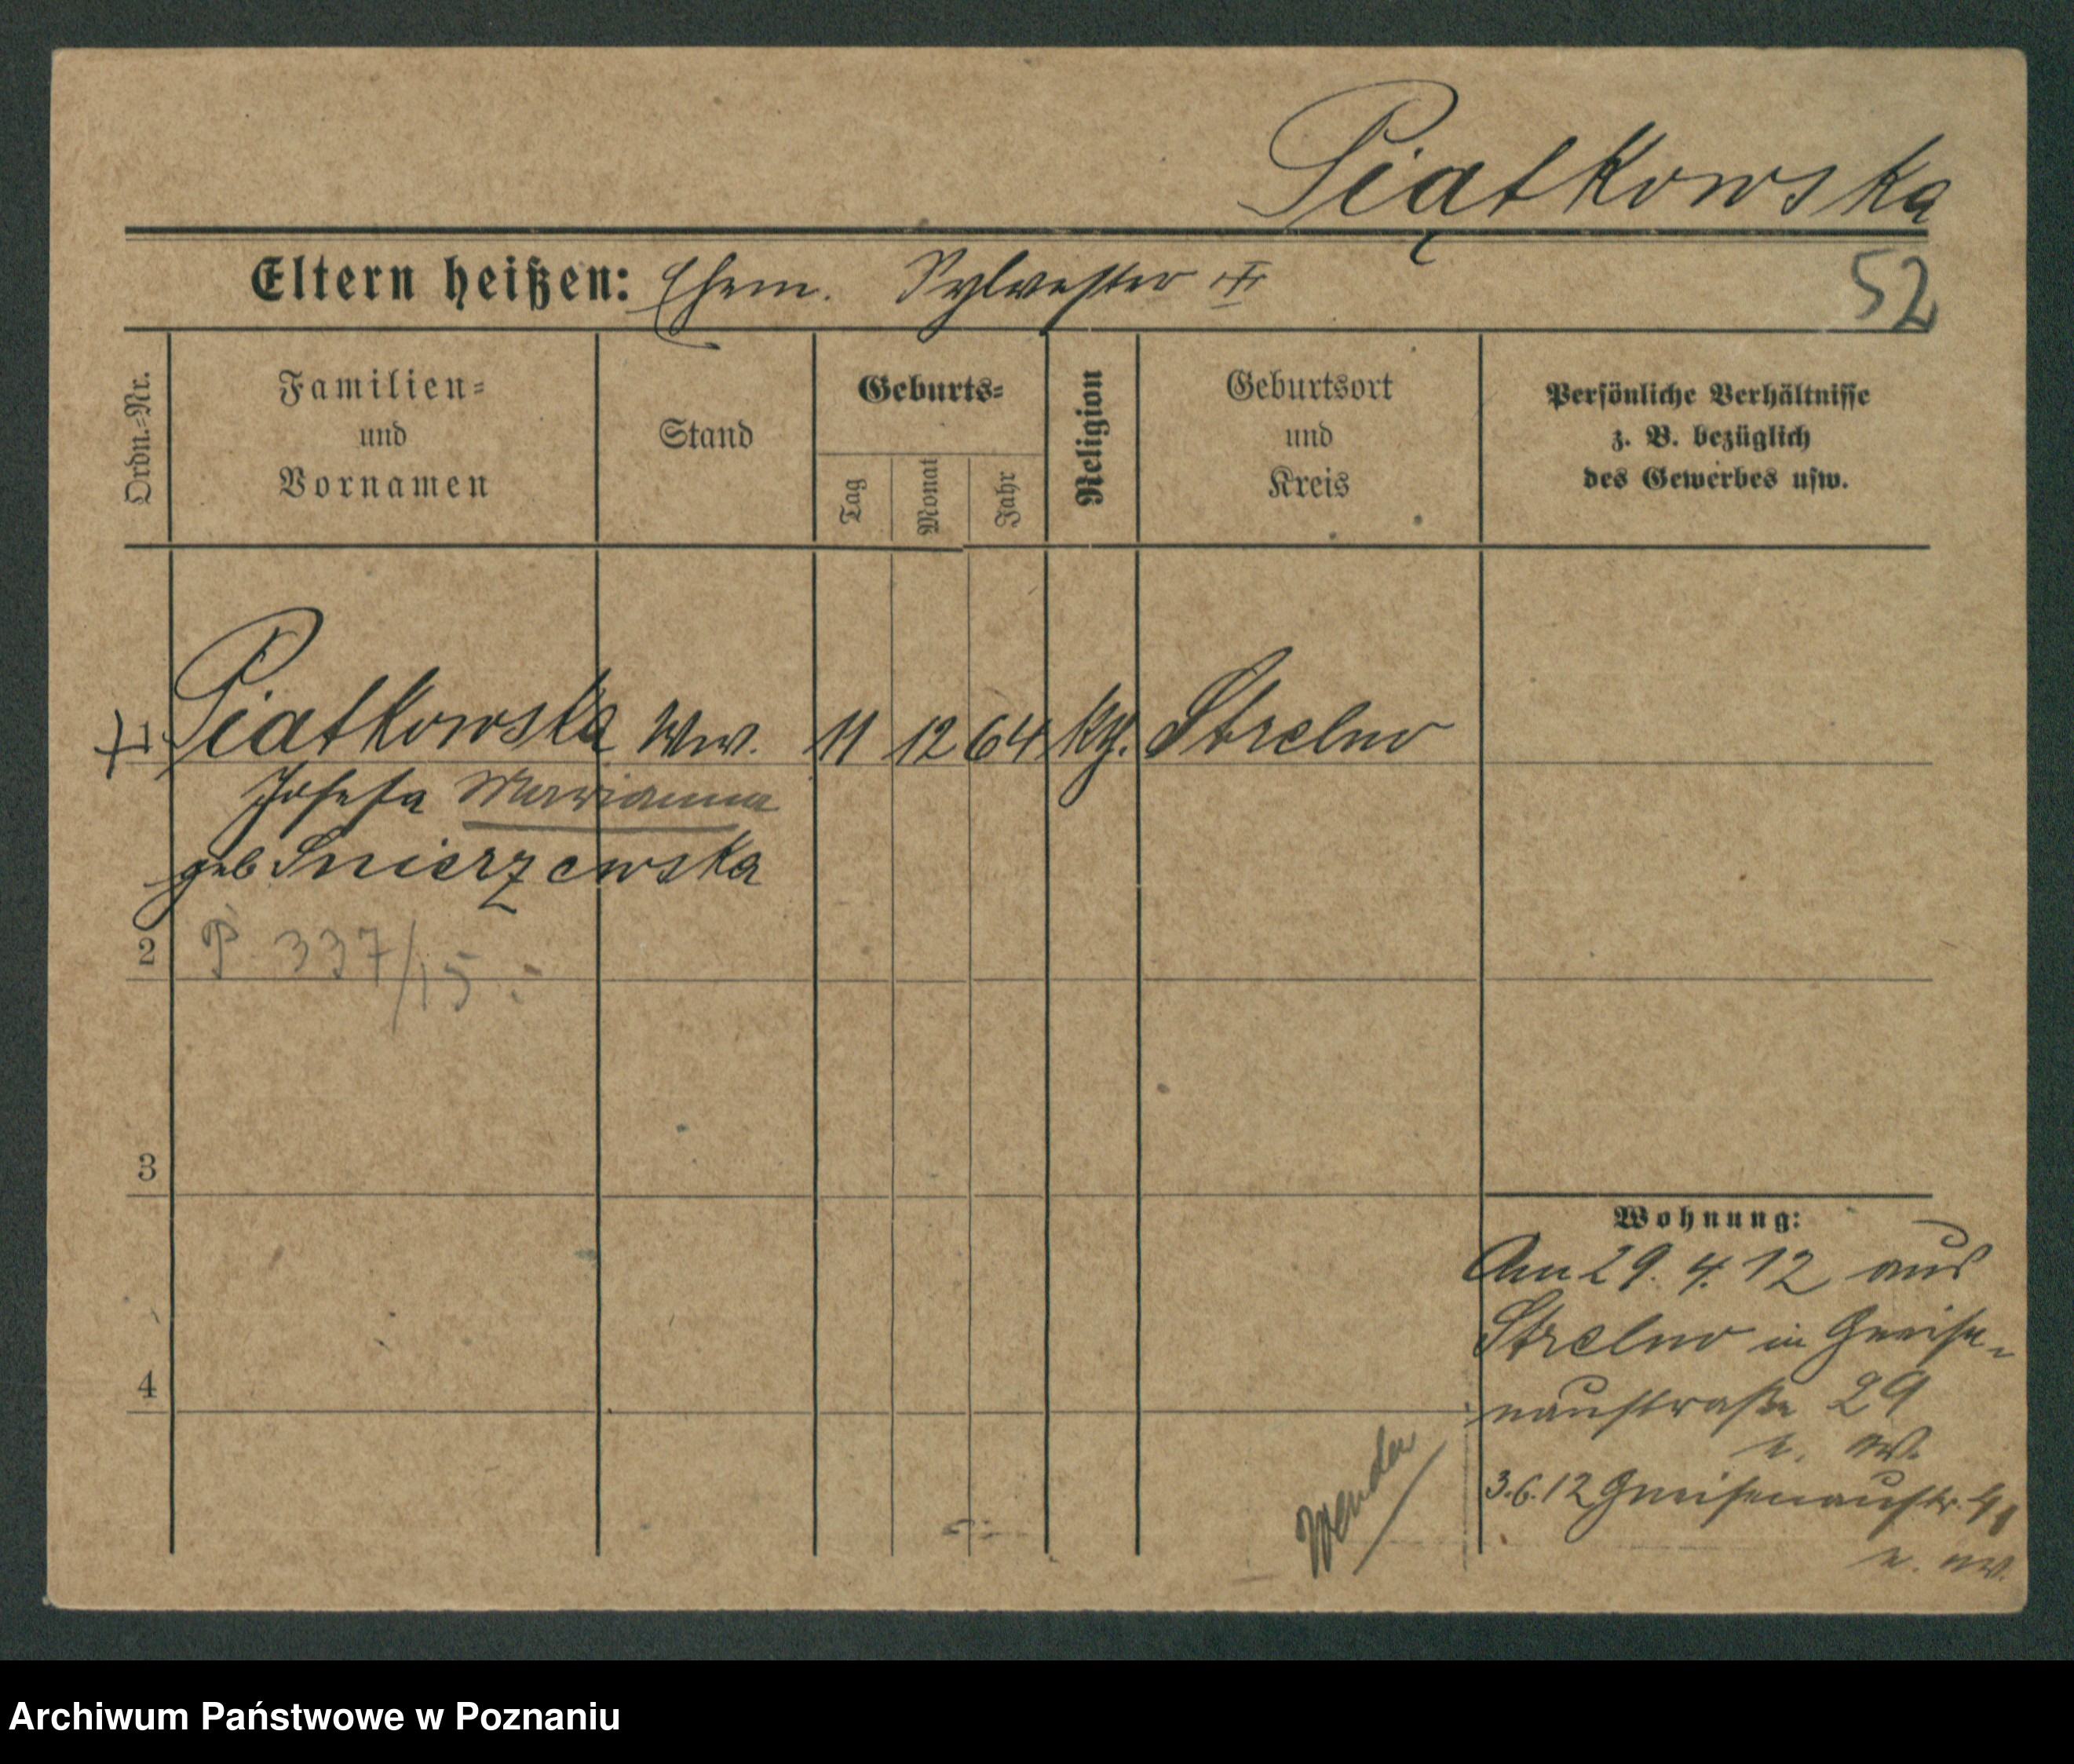 Piątkowska
Eltern heißen: Ehem. Sylvester ✝
52
Ordn.=Nr.
Familien=
und
Vornamen
Stand
Geburts=
Tag
Monat
Jahr
Religion
Geburtsort
und
Kreis
Persönliche Verhältnisse
z. B. bezüglich
des Gewerbes usw.
1 Piatkowska Ww. 11 12 64 kth. Strelno
Josefa Marianna
geb Snierzewska
2 P. 337/15.
3
4
Wohnung:
Am 29. 4. 12 aus
Strelno in Gneise-
naustraße 29
3.6.12 Gneisenaustr. 41
Wenden
Archiwum Państwowe w Poznaniu